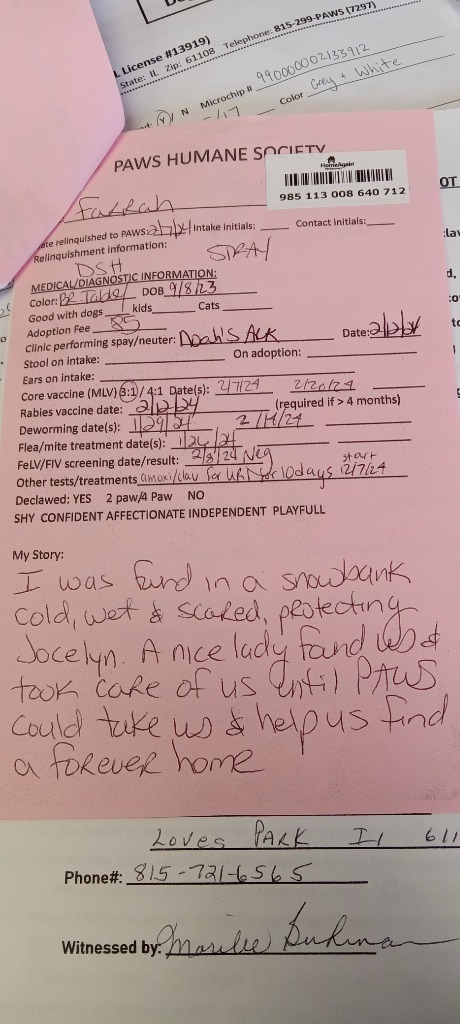 L License #13919)
State: IL Zip: 61108 Telephone: 815-299-PAWS (7297)
Y / N Microchip # 990000002133912
/17 Color Grey + White
PAWS HUMANE SOCIETY
HomeAgain
985 113 008 640 712
OT
Farrah
ate relinquished to PAWS: 2/7/24 Intake initials: Contact initials:
Relinquishment information: STRAY
DSH
MEDICAL/DIAGNOSTIC INFORMATION:
Color: BR Tabby DOB 9/8/23
Good with dogs kids Cats
Adoption Fee 85
Clinic performing spay/neuter: Noah's Ark Date: 2/2/24
Stool on intake: On adoption:
Ears on intake:
Core vaccine (MLV) 3:1 / 4:1 Date(s): 2/7/24 2/20/24
Rabies vaccine date: 2/2/24 (required if > 4 months)
Deworming date(s): 1/29/24 2/14/24
Flea/mite treatment date(s): 1/26/24
FeLV/FIV screening date/result: 2/8/24 Neg
Other tests/treatments amoxi/clav for URI for 10 days start 2/7/24
Declawed: YES 2 paw/4 Paw NO
SHY CONFIDENT AFFECTIONATE INDEPENDENT PLAYFULL
My Story:
I was found in a snowbank
cold, wet & scared, protecting
Jocelyn. A nice lady found us &
took care of us until PAWS
could take us & help us find
a forever home
Loves PARK Il 611
Phone#: 815-721-6565
Witnessed by: Marilee